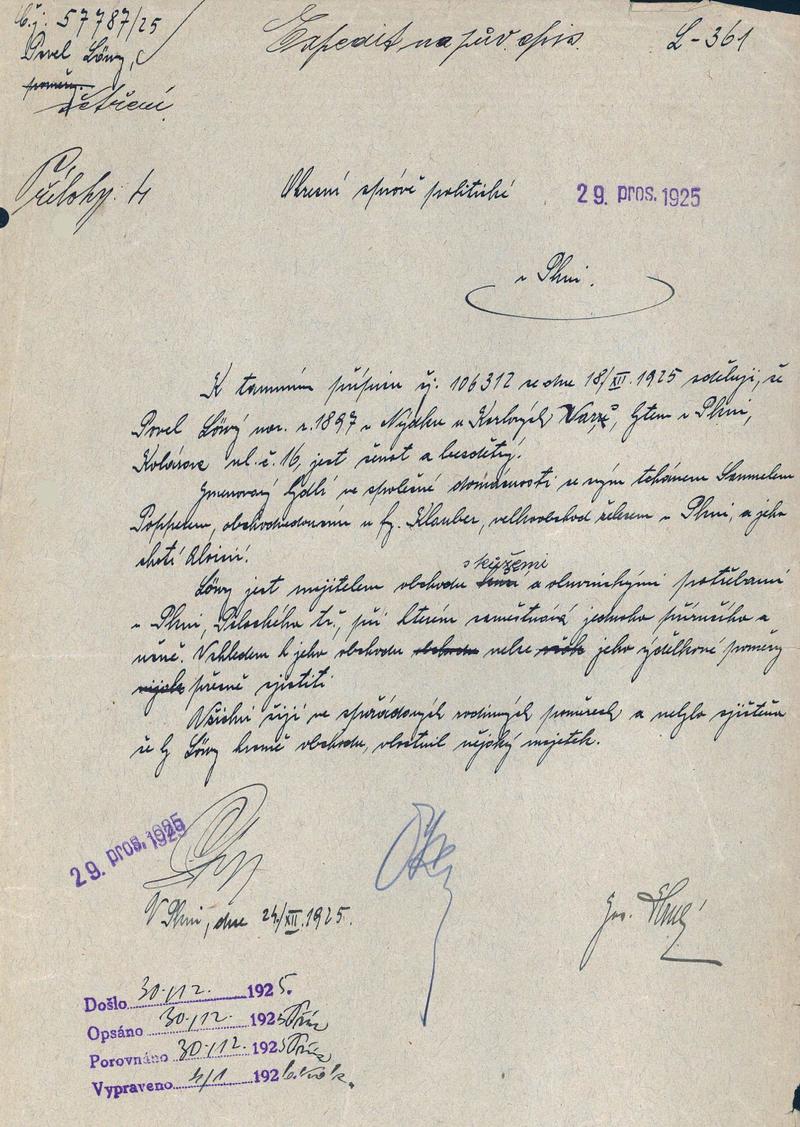 Č.j. 57787/25
Pavel Löwy,
šetření
Expedit na pův. spis.
L-361
Přílohy: 4
Okresní správě politické
29. pros. 1925
v Plzni.
K tamnímu přípisu čj. 106312 ze dne 18/XII. 1925 sděluji, že
Pavel Löwy nar. r. 1897 v Nejdku u Karlových Varů, bytem v Plzni,
Kolárova ul. č. 16, jest ženat a bezdětný.
Jmenovaný bydlí ve společné domácnosti se svým tchánem Samuelem
Popperem, obchodvedoucím u fy. Klauber, velkoobchod železem v Plzni, a jeho
chotí Aloisií.
Löwy jest majitelem obchodu s kůžemi a obuvnickými potřebami
v Plzni, Palackého tř., při kterém zaměstnává jednoho příručího a
učně. Vzhledem k jeho obchodu nelze jeho výdělkové poměry
přesně zjistiti.
Všichni žijí ve spořádaných rodinných poměrech a nebylo zjištěno
že by Löwy kromě obchodu, vlastnil nějaký majetek.
29. pros. 1925
V Plzni, dne 24/XII. 1925.
Došlo 30./12. 1925.
Opsáno 30./12. 1925
Porovnáno 30./12. 1925
Vypraveno 4/1 1926